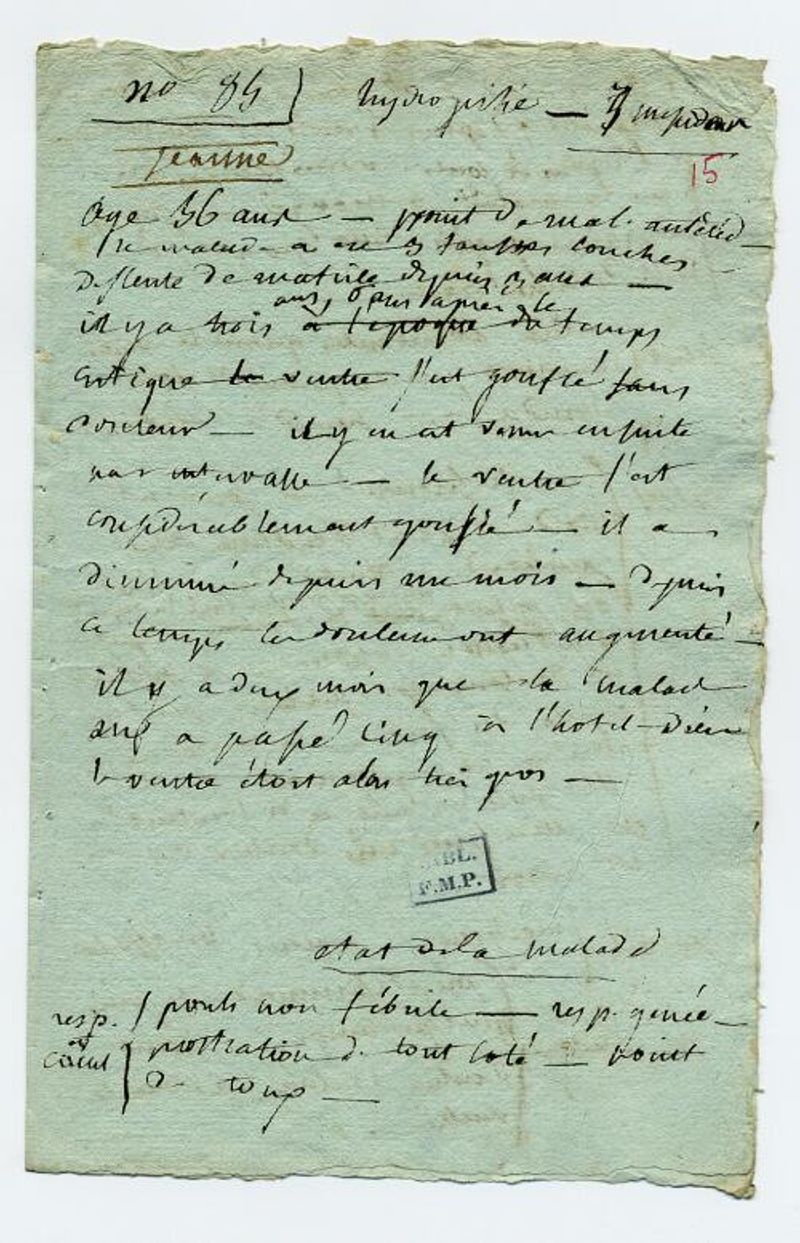 no 84 hydropisie —
15
jeanne
age 36 ans — point de mal. antéced —
la malade a eu 3 fausses couches
descente de matrice depuis 3 ans —
ans, 6 ans après le
il y a trois à l'époque du temps
critique le ventre s'est gonflé sans
douleur — il y en est venu ensuite
par intervalle — le ventre s'est
considérablement gonflé — il a
diminué depuis un mois — depuis
ce temps les douleurs ont augmenté —
il y a deux mois que la malad
a passé cinq à l'hotel-Dieu
le ventre étoit alors très gros —
BL.
F.M.P.
etat de la malade
resp. pouls non fébrile — resp. génée —
et circul prostration de tout coté — point
de toux —